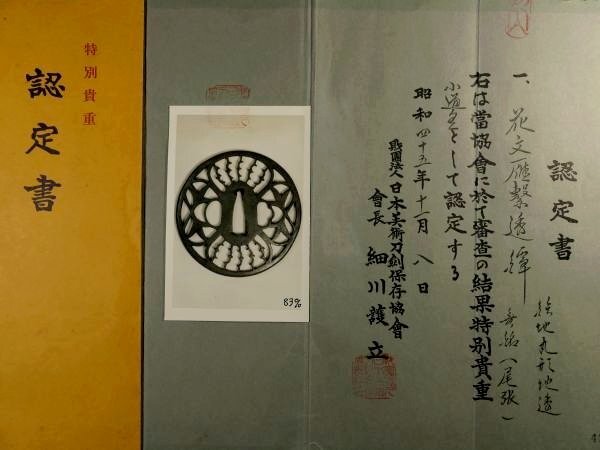 特別貴重
認定書
83%
認定書
一、花文雁繋透鐔
鉄地丸形地透
無銘(尾張)
右は當協會に於て審査の結果特別貴重
小道具として認定する
昭和四十五年十一月八日
財團法人日本美術刀剣保存協會
會長 細川護立